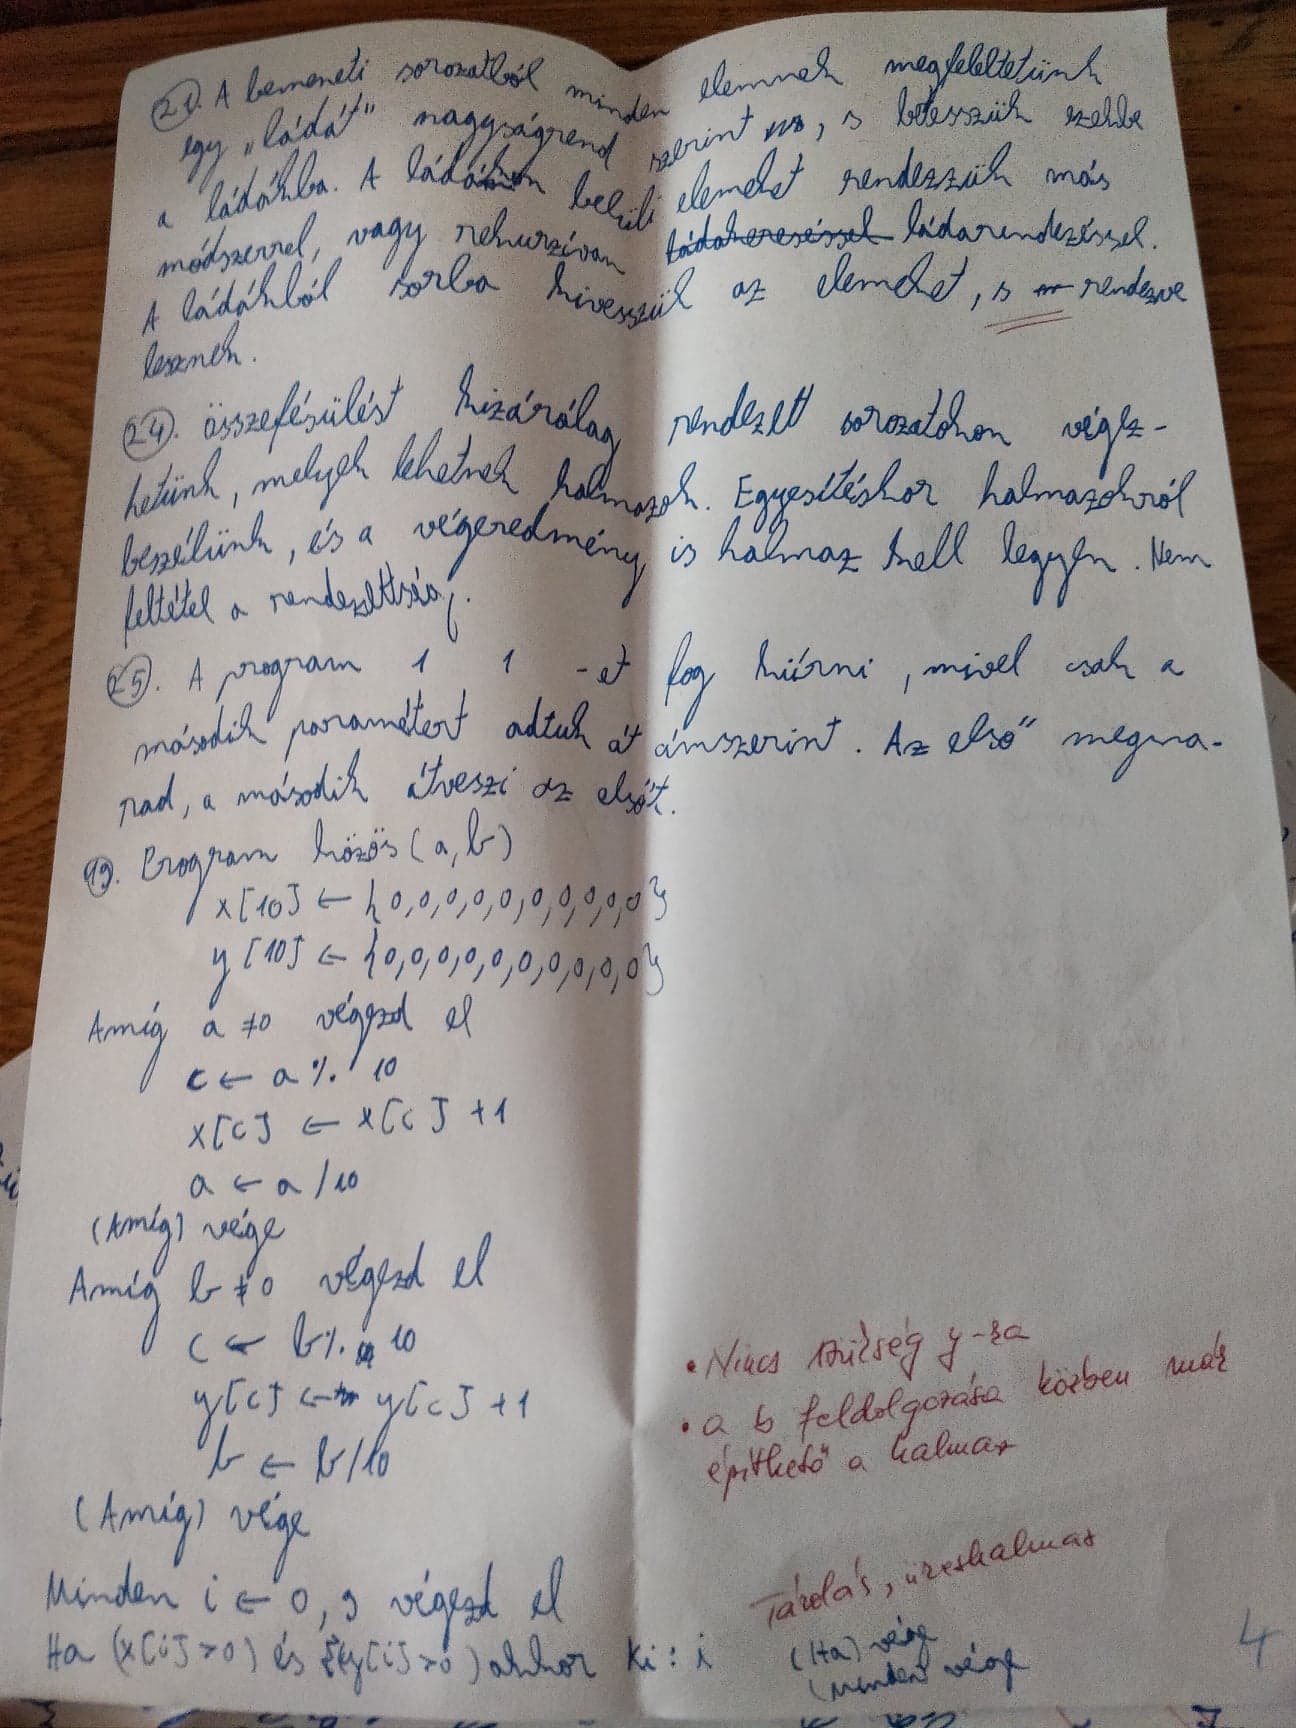 21. A bemeneti sorozatból minden elemnek megfeleltetünk
egy „ládát" nagyságrend szerint, s betesszük ezekbe
a ládákba. A ládákon belüli elemeket rendezzük más
módszerrel, vagy rekurzívan ládakereséssel ládarendezéssel.
A ládákból sorba kivesszük az elemeket, s rendezve
lesznek.
24. Összefésülést kizárólag rendezett sorozatokon végez-
hetünk, melyek lehetnek halmazok. Egyesítéskor halmazokról
beszélünk, és a végeredmény is halmaz kell legyen. Nem
feltétel a rendezettség.
25. A program 1 1 -et fog kiírni, mivel csak a
második paramétert adtuk át címszerint. Az első megma-
rad, a második átveszi az elsőt.
19. Program közös(a,b)
x[10] ← {0,0,0,0,0,0,0,0,0,0}
y[10] ← {0,0,0,0,0,0,0,0,0,0}
Amíg a ≠0 végezd el
c ← a % 10
x[c] ← x[c] +1
a ← a /10
(Amíg) vége
Amíg b ≠0 végezd el
c ← b % 10
y[c] ← y[c] +1
b ← b/10
(Amíg) vége
Minden i ← 0,9 végezd el
Ha (x[i]>0) és (y[i]>0) akkor ki: i
(Ha) vége
(Minden) vége
• Nincs szükség y-ra
• a b feldolgozása közben már
építhető a halmaz
Tárolás, üreshalmaz
4